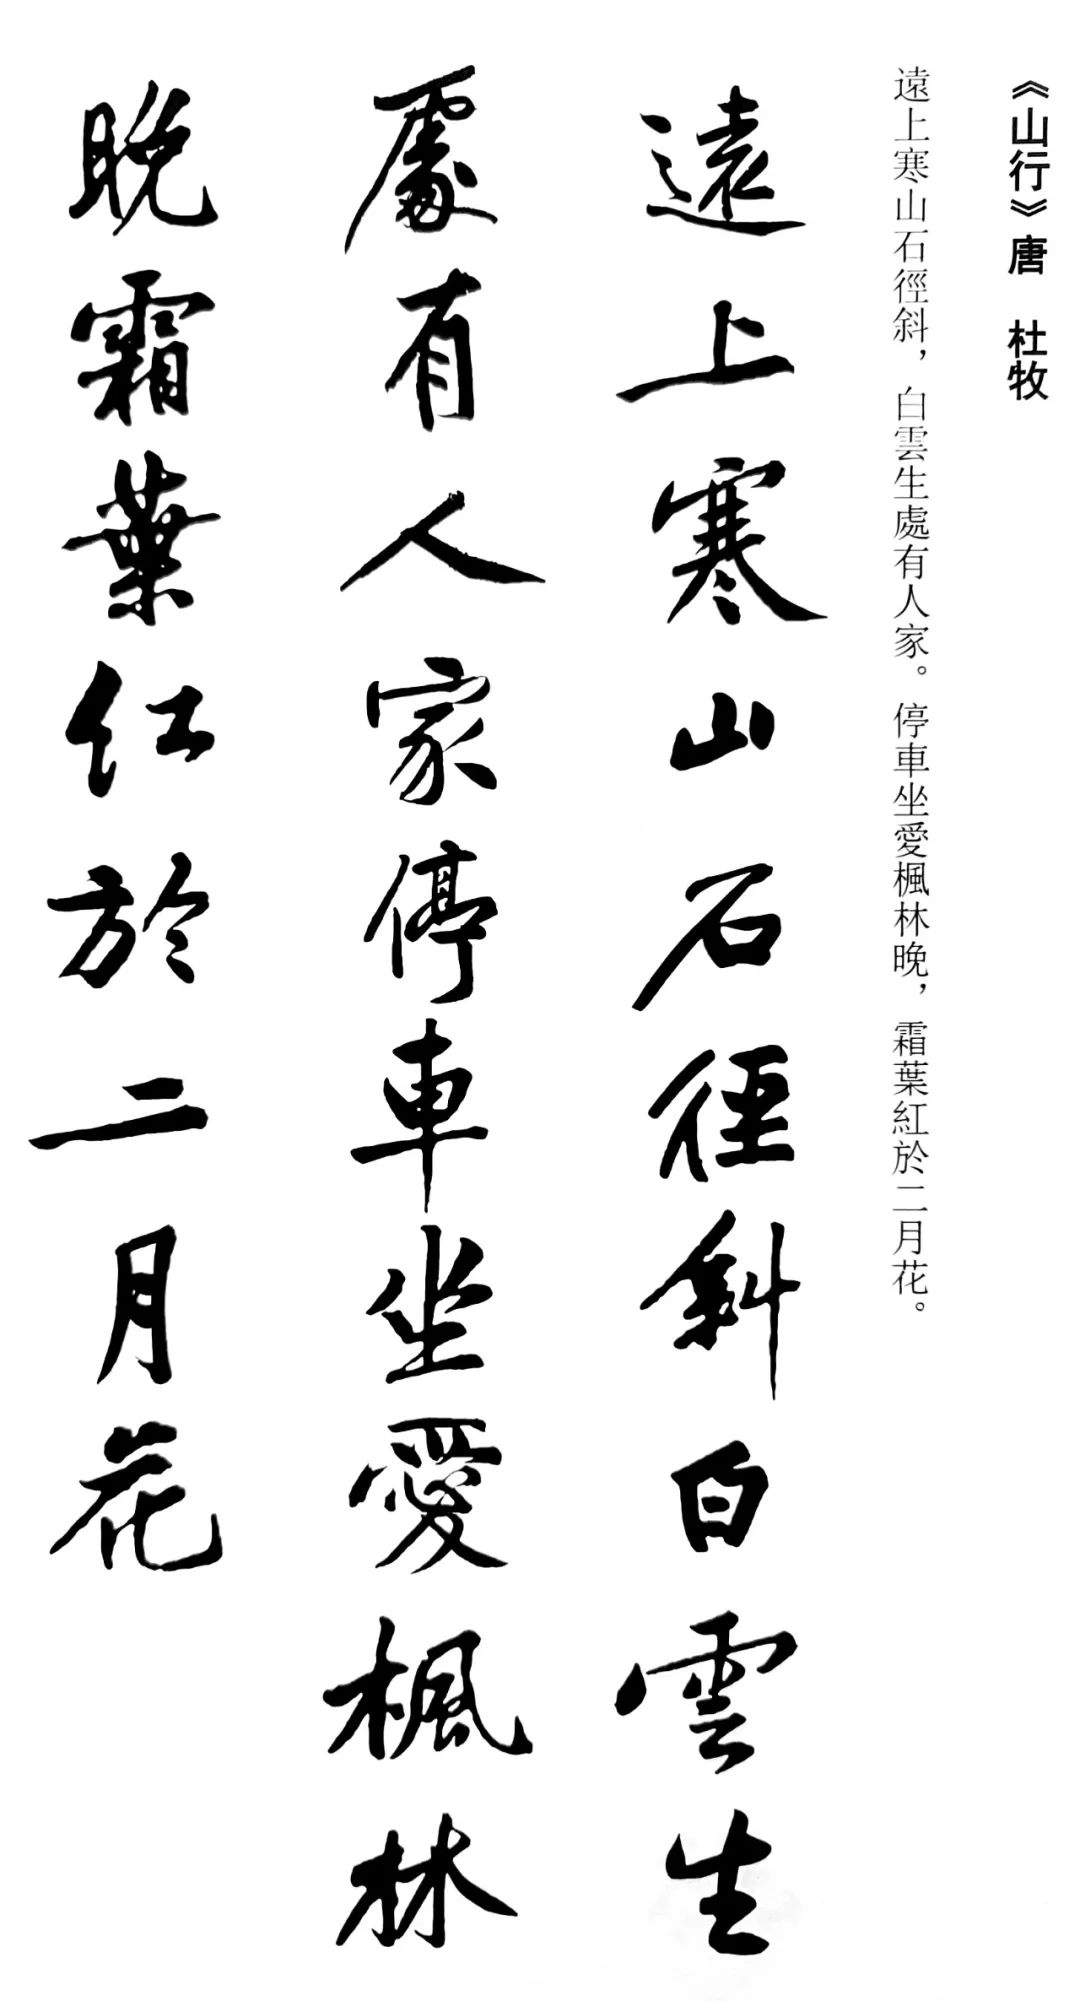 《山行》唐　杜牧
遠上寒山石徑斜，白雲生處有人家。停車坐愛楓林晚，霜葉紅於二月花。
遠上寒山石徑斜白雲生
處有人家停車坐愛楓林
晚霜葉紅於二月花